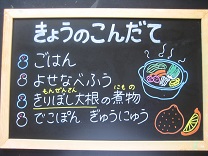 きょうのこんだて
ごはん
よせなべふう
もんぜんさん にもの
きりぼし大根の煮物
でこぽん ぎゅうにゅう